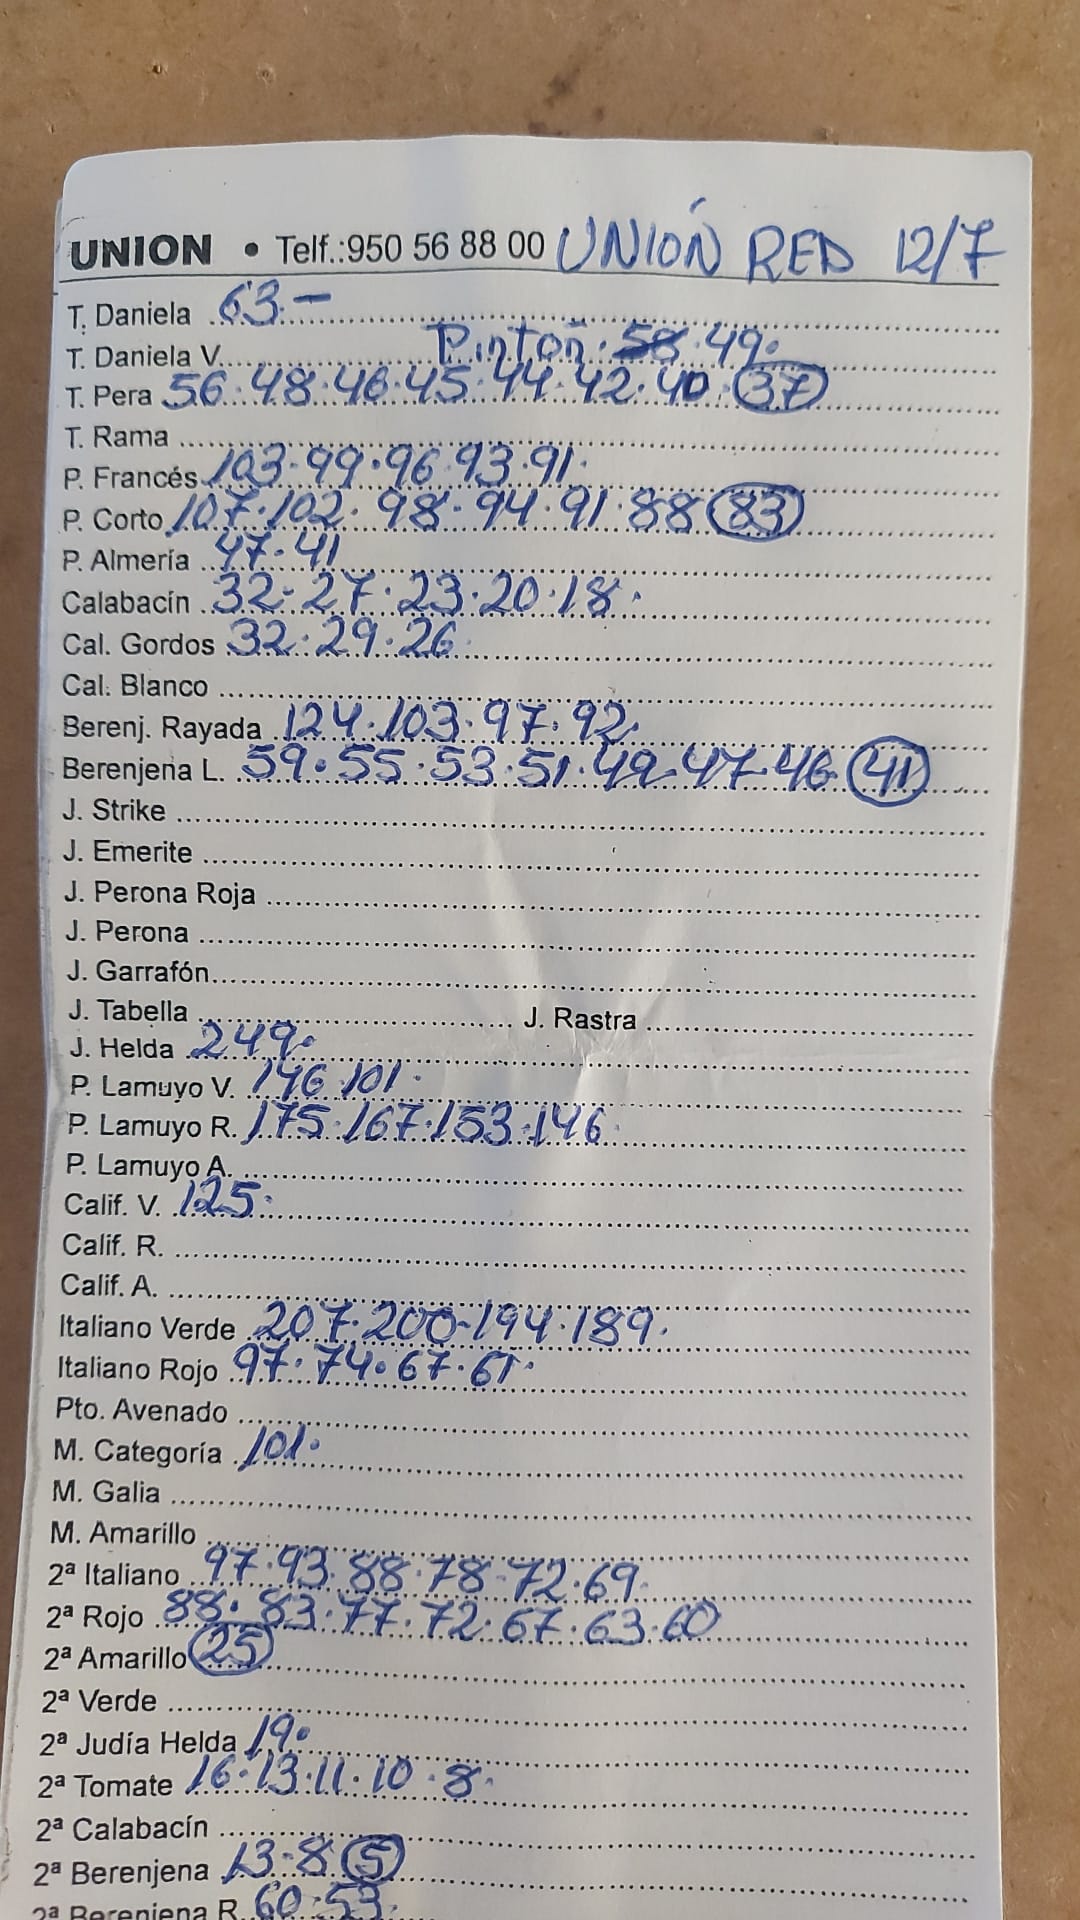 UNION • Telf.:950 56 88 00 UNIÓN RED 12/7
T. Daniela 63.-
T. Daniela V. Pintón. 58 49.
T. Pera 56.48.46.45.44.42.40.37
T. Rama
P. Francés 103.99.96.93.91.
P. Corto 107.102.98.94.91.88 83
P. Almería 47.41
Calabacín 32.27.23.20.18.
Cal. Gordos 32.29.26.
Cal. Blanco
Berenj. Rayada 124.103.97.92.
Berenjena L. 59.55.53.51.49.47.46 41
J. Strike
J. Emerite
J. Perona Roja
J. Perona
J. Garrafón
J. Tabella J. Rastra
J. Helda 249.
P. Lamuyo V. 146.101.
P. Lamuyo R. 175.167.153.146.
P. Lamuyo A.
Calif. V. 125.
Calif. R.
Calif. A.
Italiano Verde 207.200-194.189.
Italiano Rojo 97.74.67.61.
Pto. Avenado
M. Categoría 101.
M. Galia
M. Amarillo
2ª Italiano 97.93.88.78-72.69.
2ª Rojo 88.83.77.72.67.63.60
2ª Amarillo 25
2ª Verde
2ª Judía Helda 19.
2ª Tomate 16.13.11.10.8.
2ª Calabacín
2ª Berenjena 13.8 5
2ª Berenjena R. 60.53.